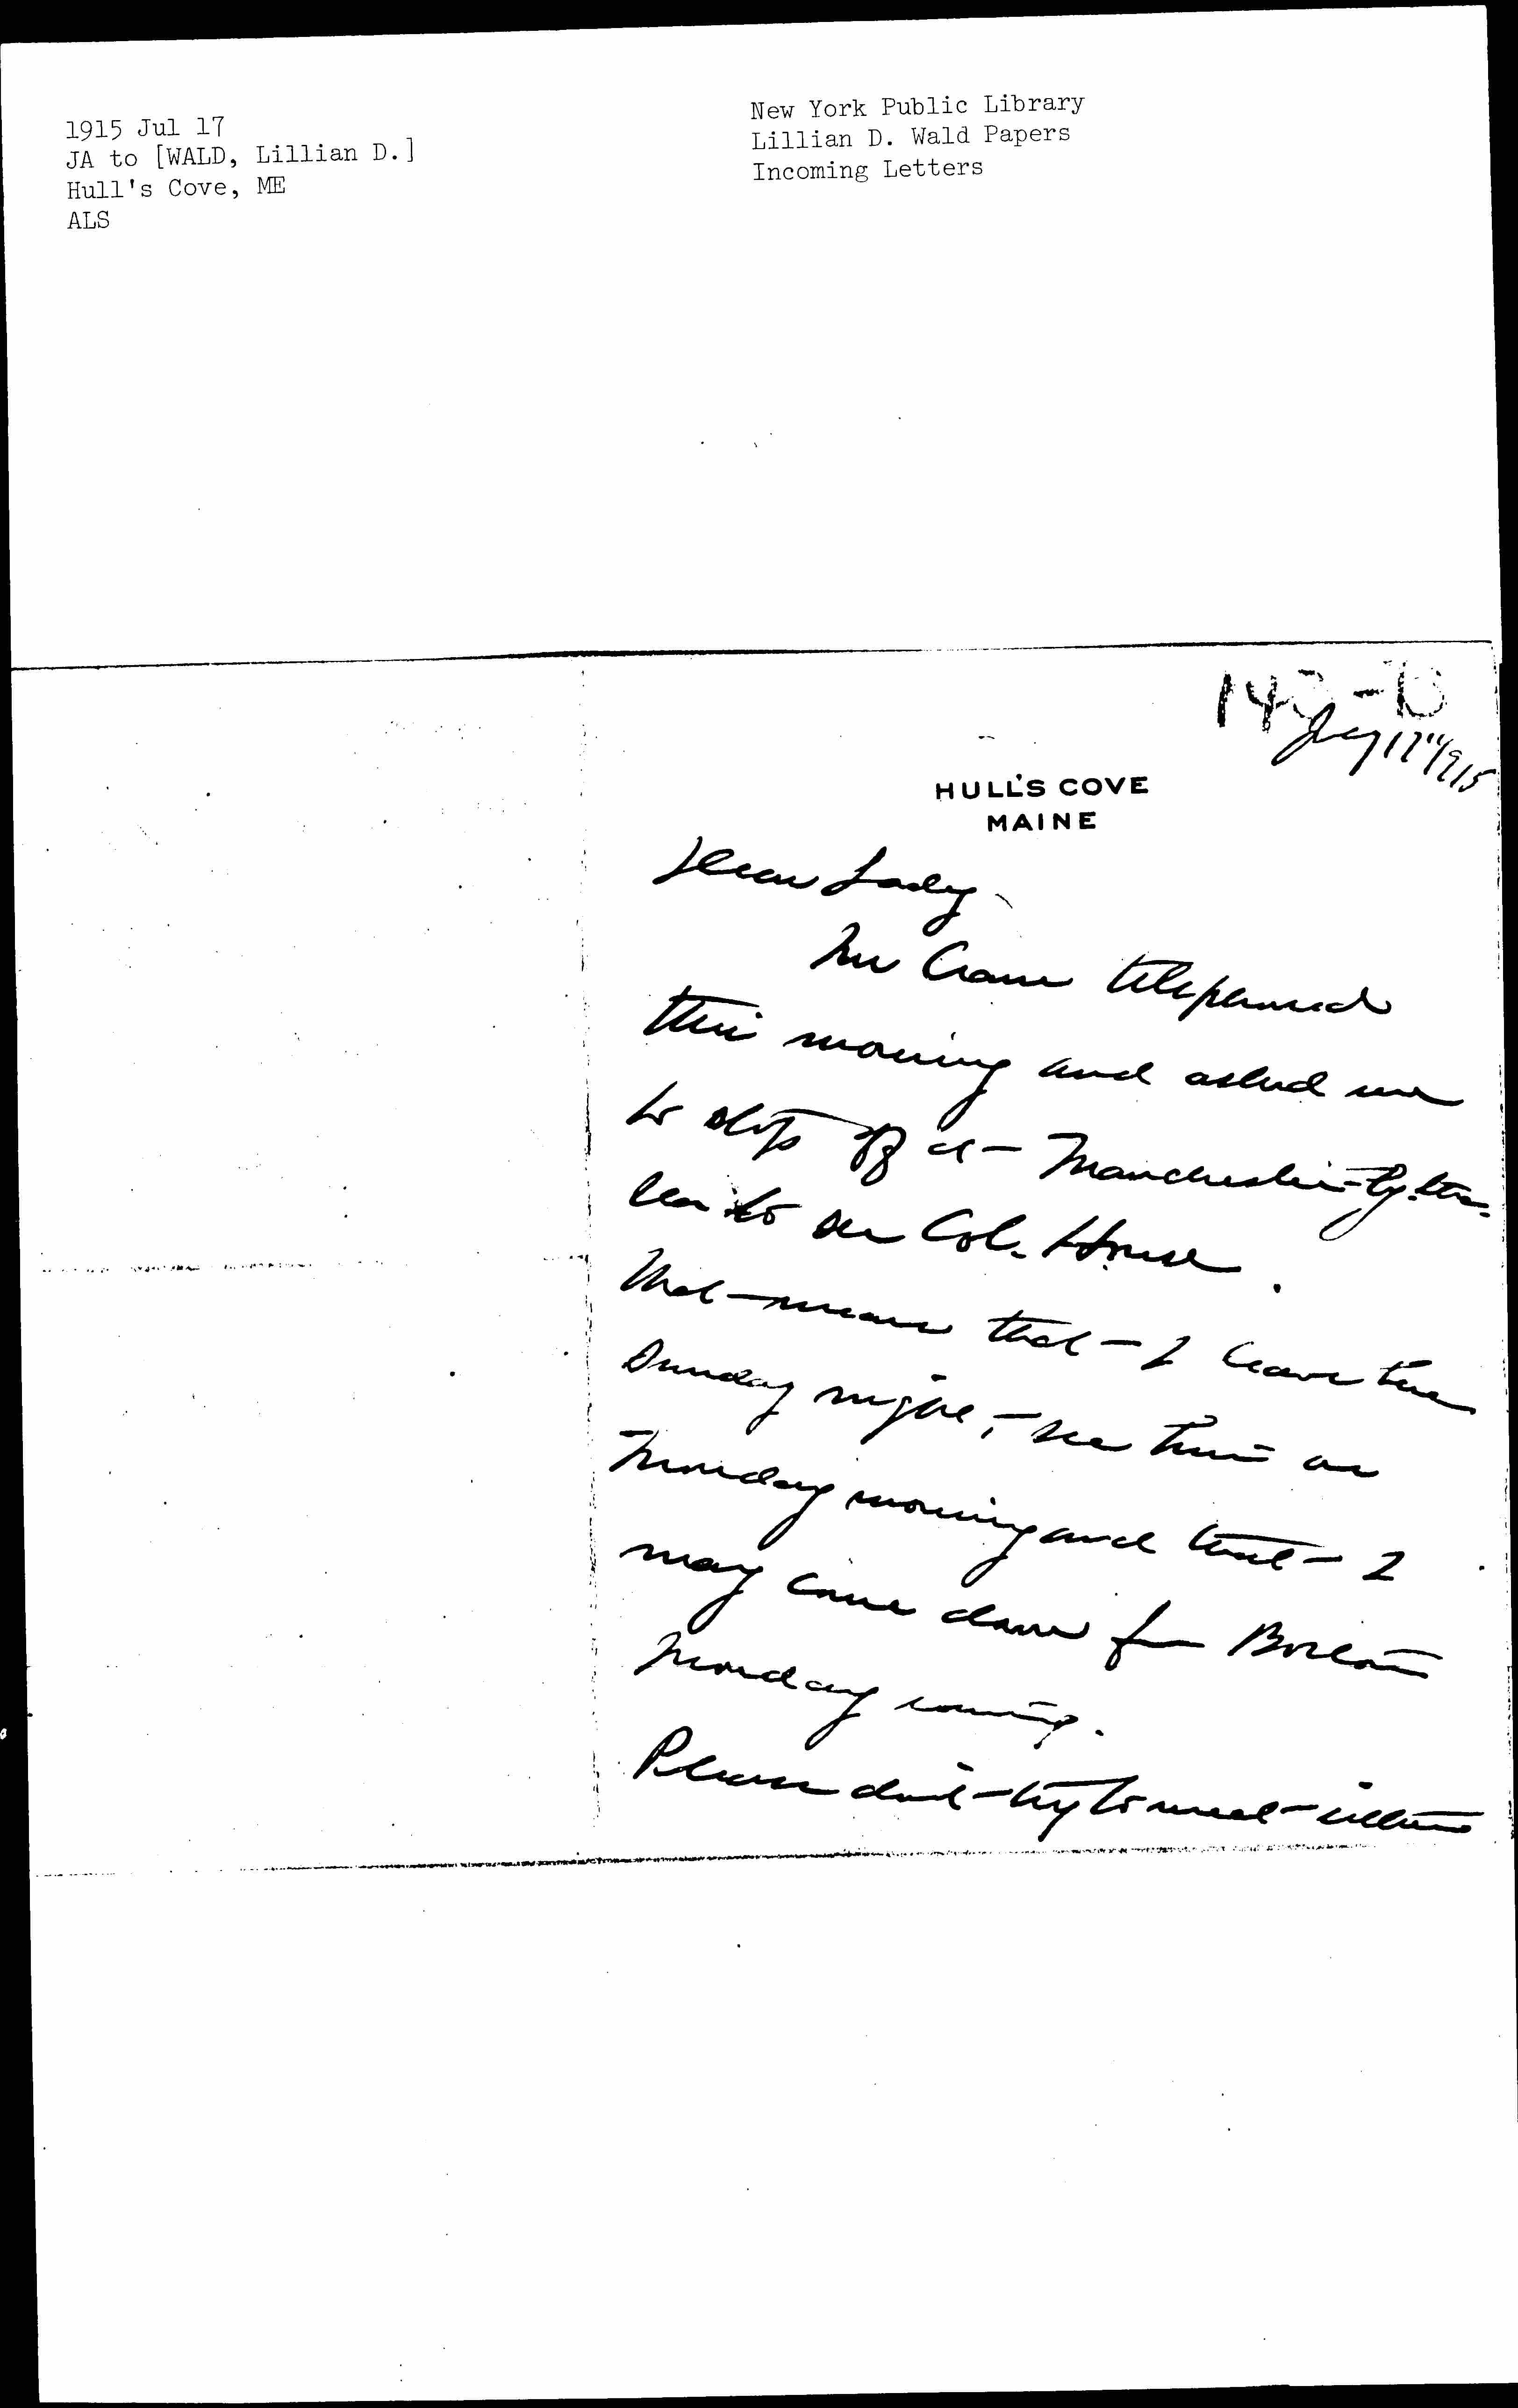 1915 Jul 17
JA to [WALD, Lillian D.]
Hull's Cove, ME
ALS
New York Public Library
Lillian D. Wald Papers
Incoming Letters
July 17" 1915
HULL'S COVE
MAINE
Dear Lady
Mr Crane telephoned
this morning and asked me
to stop off at Manchester-by-the-
Sea to see Col. House.
That means that I leave here
Sunday night, see him on
Monday morning and that I
may come down from Boston
Monday evening.
Please don't try to meet